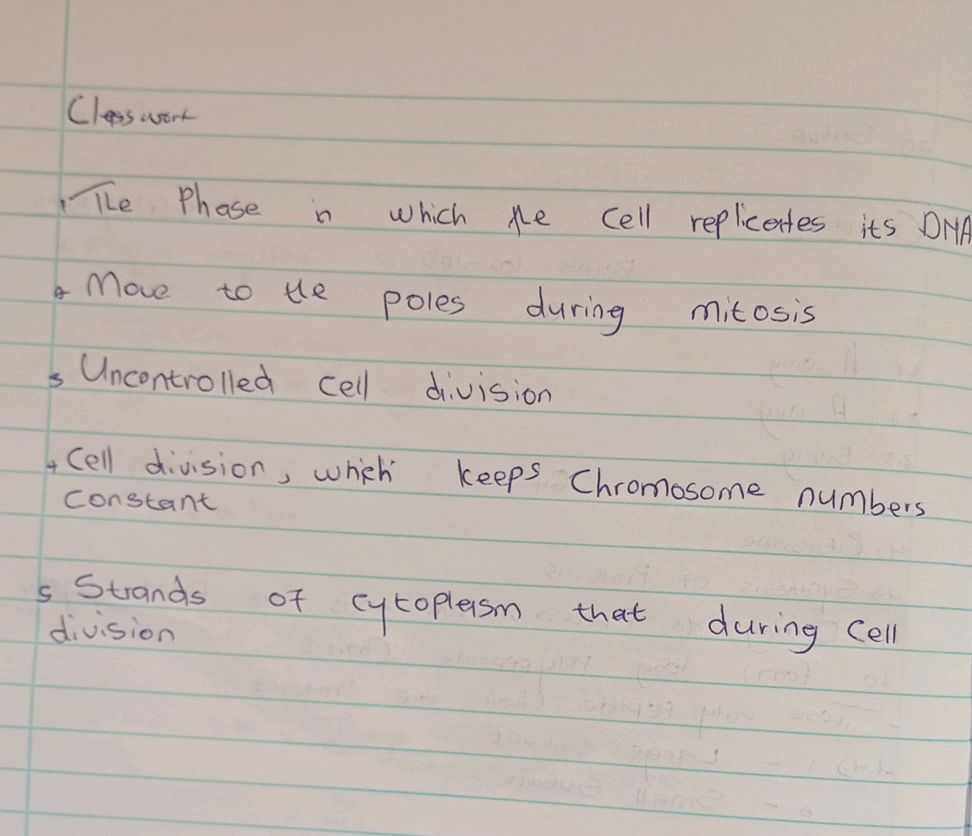 Classwork
1 The Phase in which the Cell replicates its DNA
2 Move to the poles during mitosis
3 Uncontrolled cell division
4 Cell division, which keeps Chromosome numbers
constant
5 Strands of cytoplasm that during Cell
division